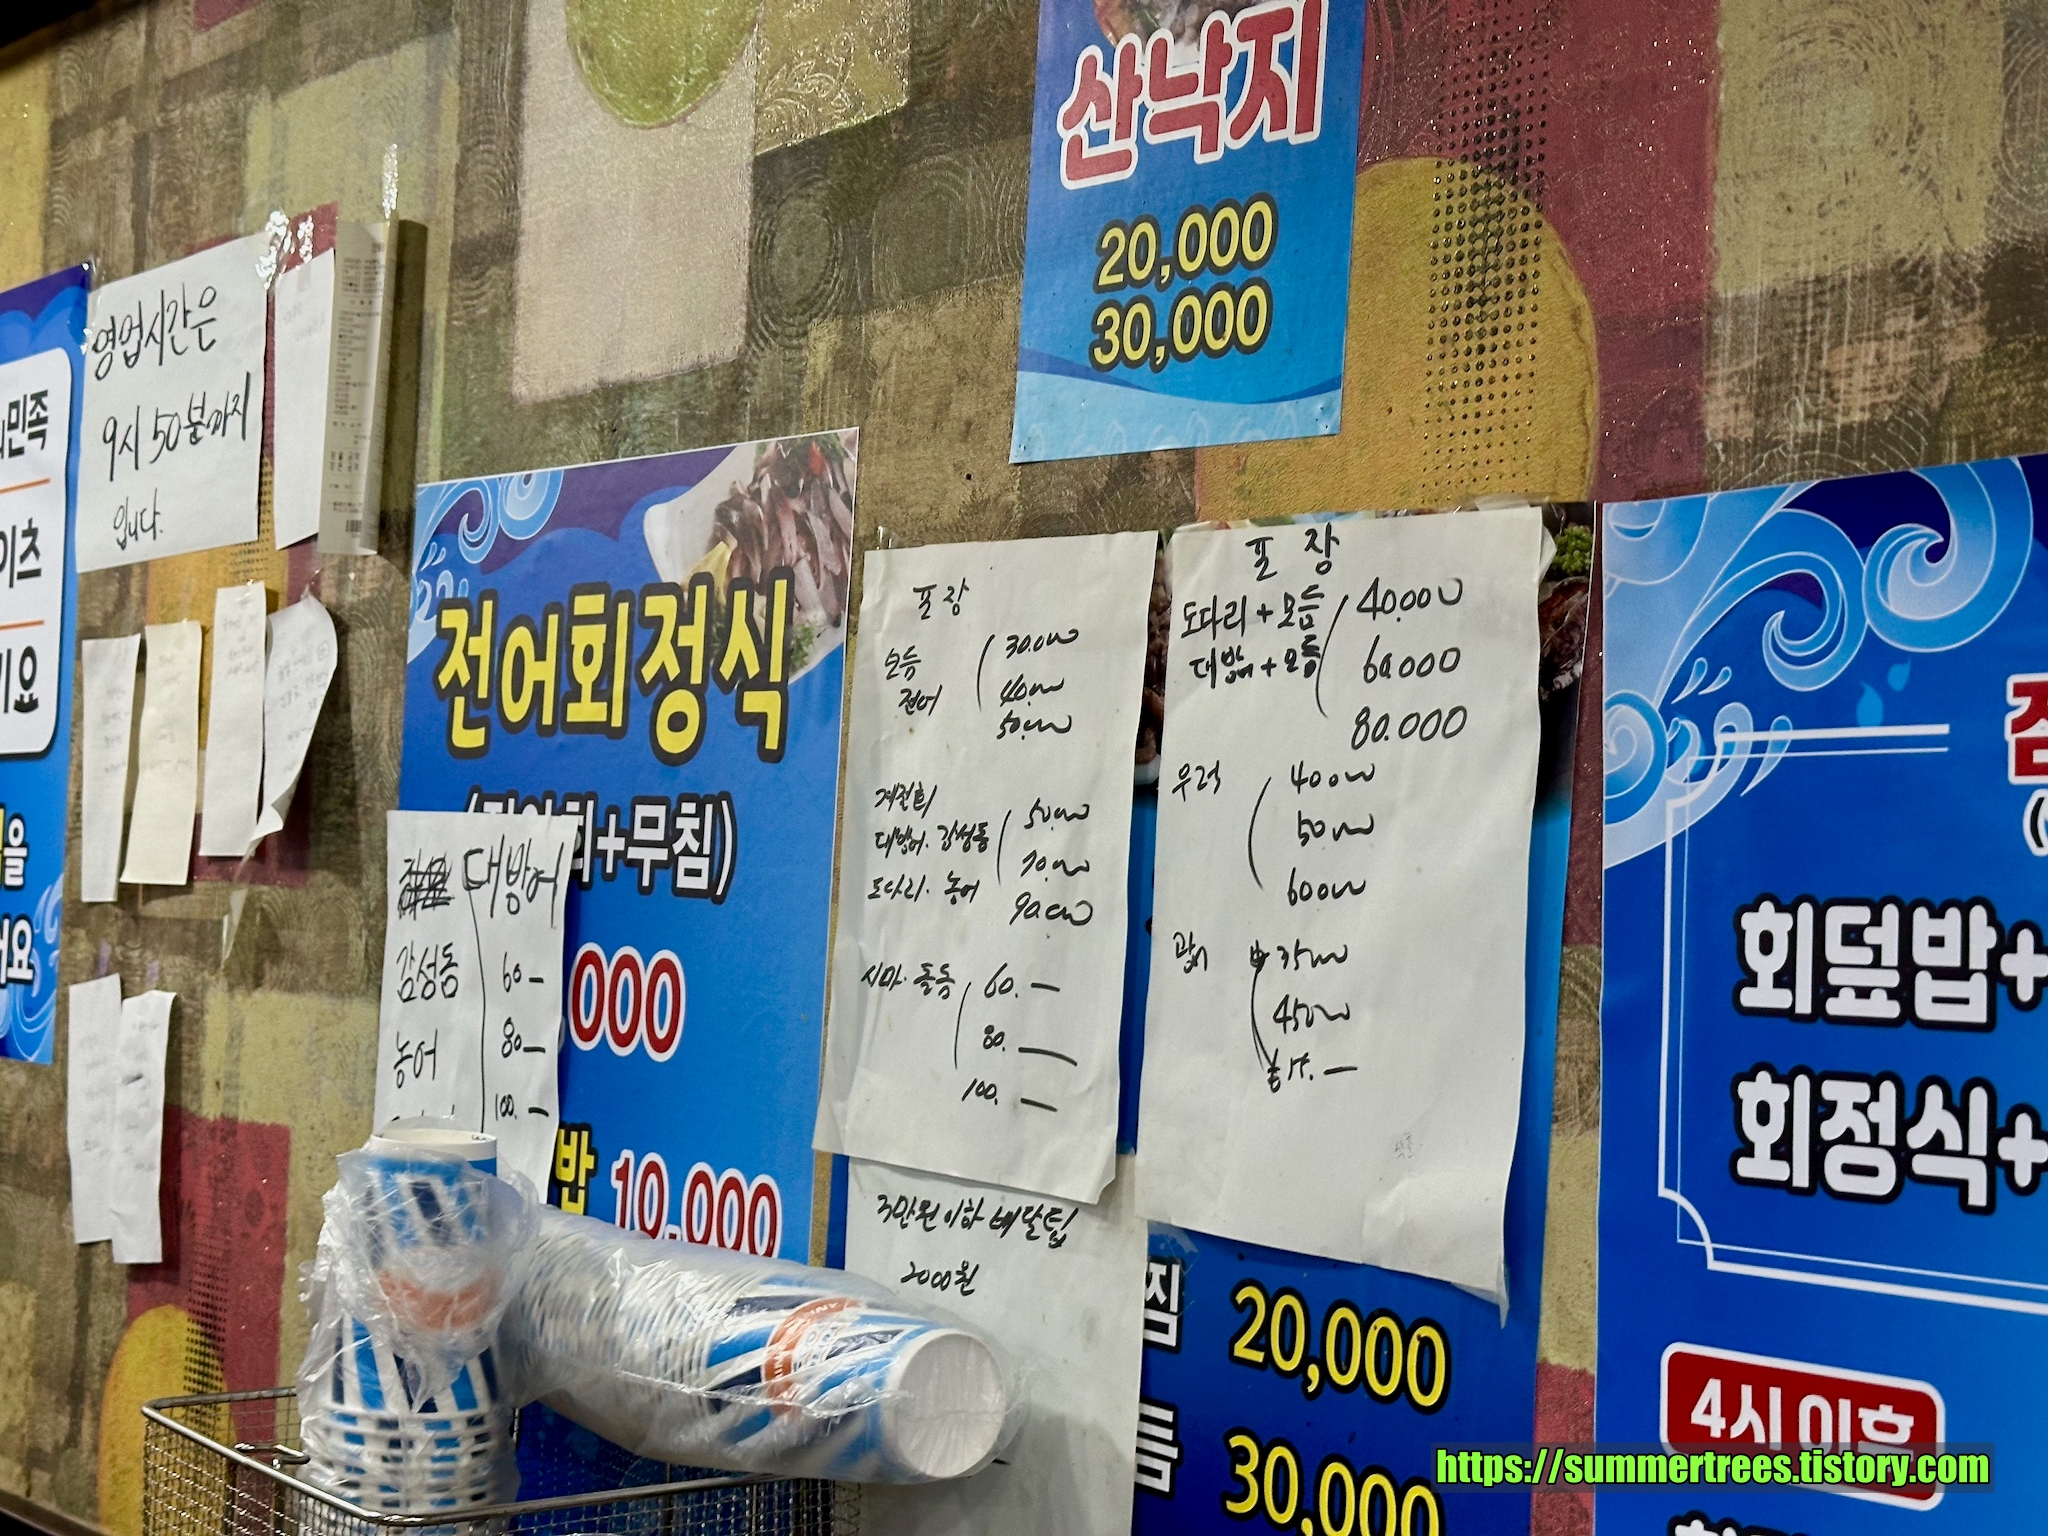 산낙지
20,000
30,000
영업시간은
9시 50분까지
입니다.
민족
이츠
기요
을
요
전어회정식
회+무침)
대방어
감성돔
농어
60 –
80 –
100. –
000
밥 10,000
포장
모듬
전어
30.000
40.000
50.000
계절회
대방어. 감성돔
도다리. 농어
50.000
70.000
90.000
시마. 돌돔
60. –
80. –
100. –
3만원 이하 배달팁
2000원
포장
도다리 + 모듬
대방어 + 모듬
40.000
60.000
80.000
우럭
40000
50.000
60000
광어
35000
45000
찜 20,000
30,000
회덮밥+
회정식+
4시 이후
https://summertrees.tistory.com